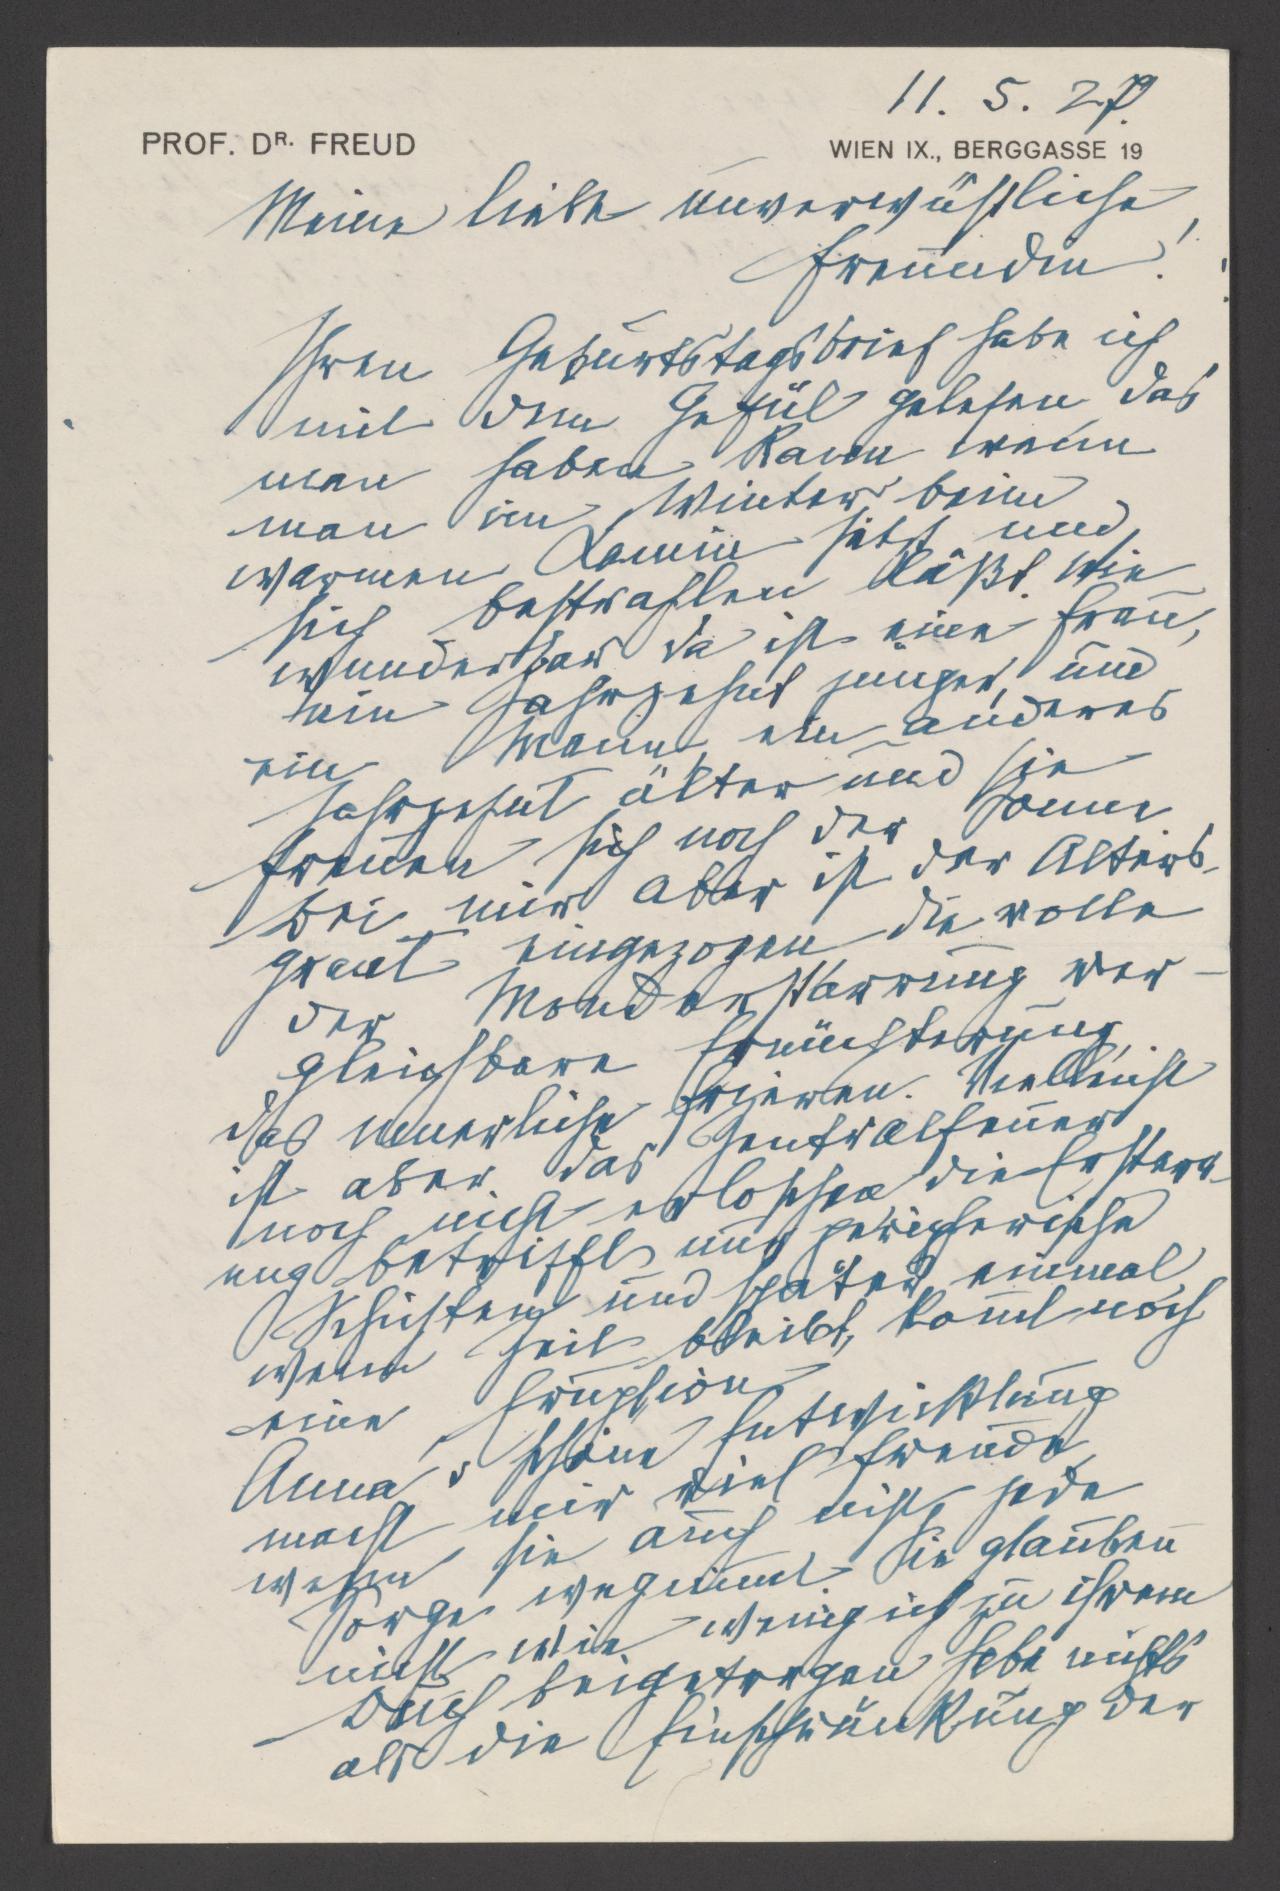 11. 5. 27.
PROF. DR. FREUD
WIEN IX., BERGGASSE 19
Meine liebe unverwüstliche
Freundin!
Ihren Geburtstagsbrief habe ich
mit dem Gefül gelesen das
man haben kann wenn
man im Winter beim
warmen Kamin sitzt und
sich bestrahlen läßt. Wie
wunderbar da ist eine Frau,
ein Jahrzehnt jünger, und
ein Mann, ein anderes
Jahrzehnt älter und sie
freuen sich noch der Sonne
Bei mir aber ist der Alters-
grant eingezogen die volle
der Monderstarrung ver-
gleichbare Ernüchterung
das innerliche Frieren. Vielleicht
ist aber das Zentralfeuer
noch nicht erloschen die Erstarr-
ung betrifft nur peripherische
Schichten und später einmal
wenn Zeit bleibt, komt noch
eine Eruption
Anna's schöne Entwicklung
macht mir viel Freude
wenn sie auch nicht jede
Sorge wegnimt. Sie glauben
nicht wie wenig ich zu ihrem
Buch beigetragen habe nichts
als die Einschränkung der